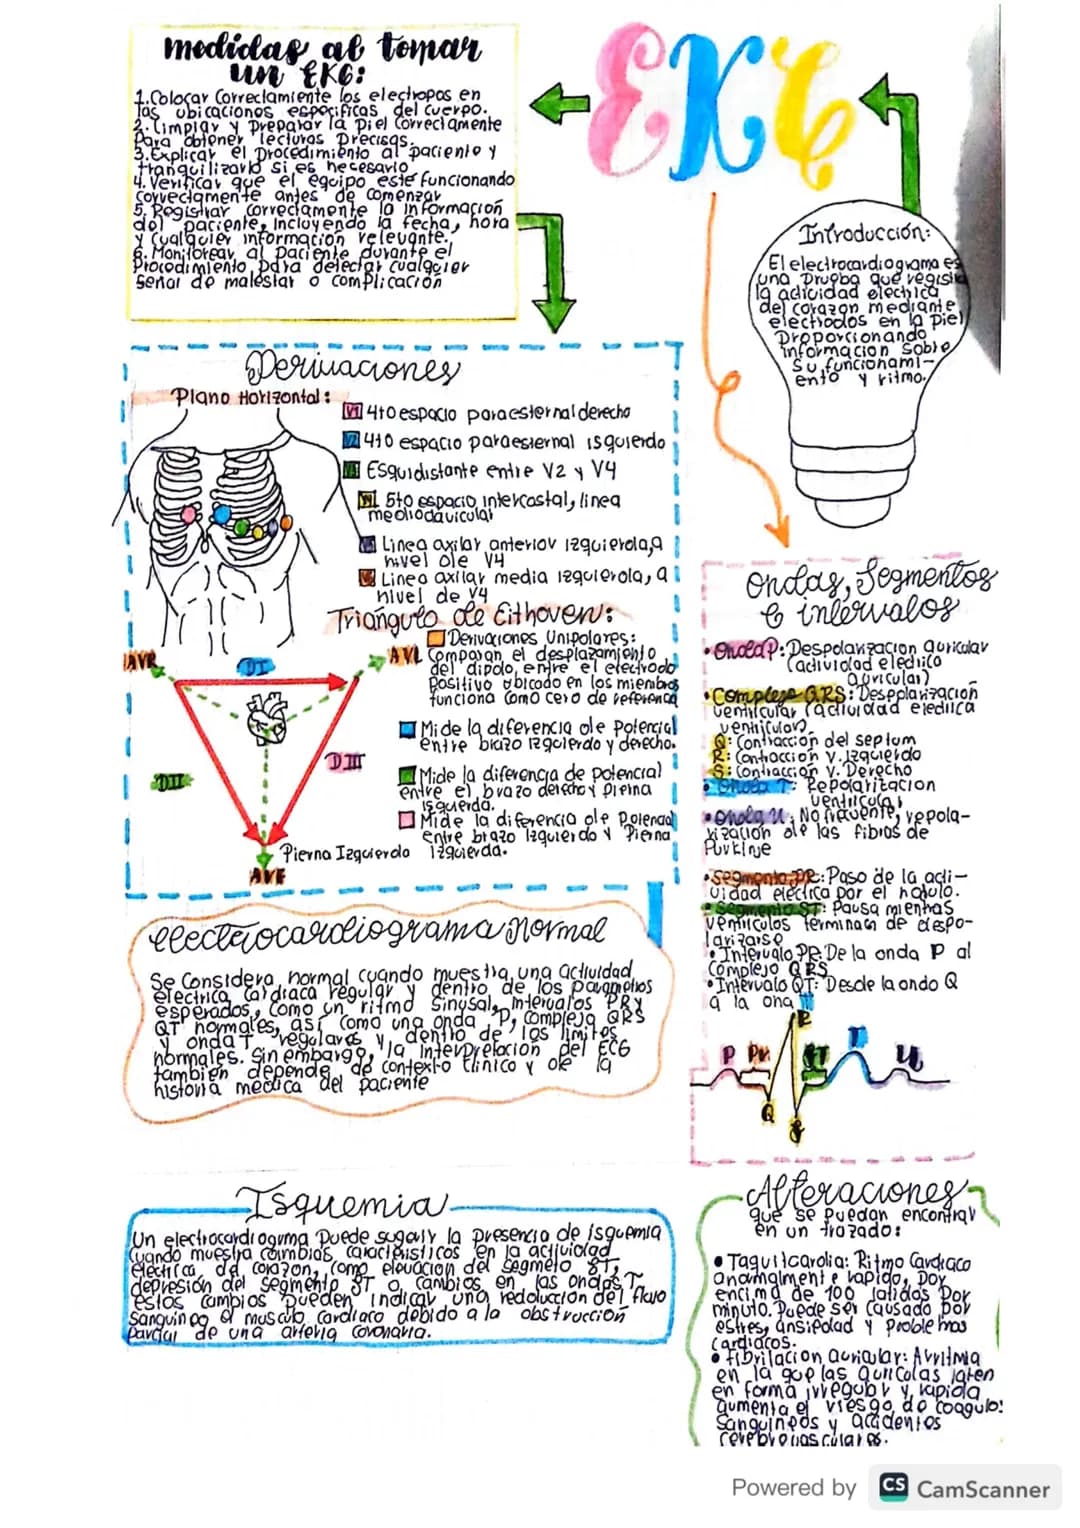 medidas al tomar
un EKG:
1.Colocar Correctamente los electrodos en
las ubicaciones especificas del cuerpo.
2.Limpiar y Preparar la Piel Correctamente
Para obtener lecturas Precisas.
3.Explicar el procedimiento al paciente y
tranquilizarlo si es necesario
4.Verificar que el equipo este funcionando
correctamente antes de comenzar
5.Registrar correctamente la información
del paciente, incluyendo la fecha, hora
y cualquier información relevante.
6.Monitorear al Paciente durante el
Procedimiento para detectar cualquier
señal de malestar o complicación
EKG
Introducción:
El electrocardiograma es
una Prueba que registra
la actividad electrica
del corazon mediante
electrodos en la Piel
Proporcionando
informacion sobre
su funcionami-
ento y ritmo.
Derivaciones
Plano Horizontal:
V1 4to espacio paraesternal derecho
V2 4to espacio paraesternal izquierdo
V3 Esquidistante entre V2 y V4
V4 5to espacio intercostal, linea
medioclavicular
V5 Linea axilar anterior izquierda, a
nivel de V4
V6 Linea axilar media izquierda, a
nivel de V4
Triángulo de Eithoven:
Derivaciones Unipolares:
Comparan el desplazamiento
del dipolo, entre el electrodo
positivo ubicado en los miembros
funciona como cero de referencia
Mide la diferencia de Potencial
entre brazo izquierdo y derecho.
Mide la diferencia de potencial
entre el brazo derecho y Pierna
izquierda.
Mide la diferencia de Potencial
entre brazo Izquierdo y Pierna
Izquierda.
AVR
DI
AVL
DII
DIII
Pierna Izquierda
AVF
Ondas, Segmentos
e intervalos
•Onda P: Despolarizacion auricular
(actividad electrica
auricular)
•Complejo QRS: Despolarización
ventricular (actividad electrica
ventricular).
Q: Contracción del septum
R: Contracción v. Izquierdo
S: Contracción v. Derecho
•Onda T: Repolarizacion
ventricular
•Onda U: No frecuente, repola-
rización de las fibras de
Purkinje
•Segmento PR: Paso de la acti-
vidad electrica por el nodulo.
•Segmento ST: Pausa mientras
ventriculos terminan de despo-
larizarse
•Intervalo PR: De la onda P al
complejo QRS
•Intervalo QT: Desde la onda Q
a la ona T
P
PR
Q
R
S
ST
T
U
electrocardiograma Normal
Se Considera normal cuando muestra una actividad
electrica cardiaca regular y dentro de los parametros
esperados, como un ritmo sinusal, intervalos PR Y
QT normales, así como una onda P, complejo QRS
y onda T regulares y dentro de los limites
normales. Sin embargo, la interpretacion del ECG
tambien depende de contexto clinico y de la
historia medica del paciente
Isquemia
Un electrocardiograma Puede sugerir la presencia de isquemia
cuando muestra cambios caracteristicos en la actividad
electrica del corazon, como elevacion del segmeto ST,
depresión del segmento ST o cambios en las ondas T,
estos cambios pueden indicar una reducción del flujo
sanguineo al musculo cardiaco debido a la obstrucción
parcial de una arteria coronaria.
Alteraciones
que se puedan encontrar
en un trazado:
• Taquicardia: Ritmo Cardiaco
anormalmente rapido, por
encima de 100 latidos por
minuto. Puede ser causado por
estres, ansiedad y problemas
cardiacos.
• fibrilacion auricular: Arritmia
en la que las auriculas laten
en forma irregular y rapida
aumenta el riesgo de coagulos
sanguineos y accidentes
cerebrovasculares.
Powered by CS CamScanner